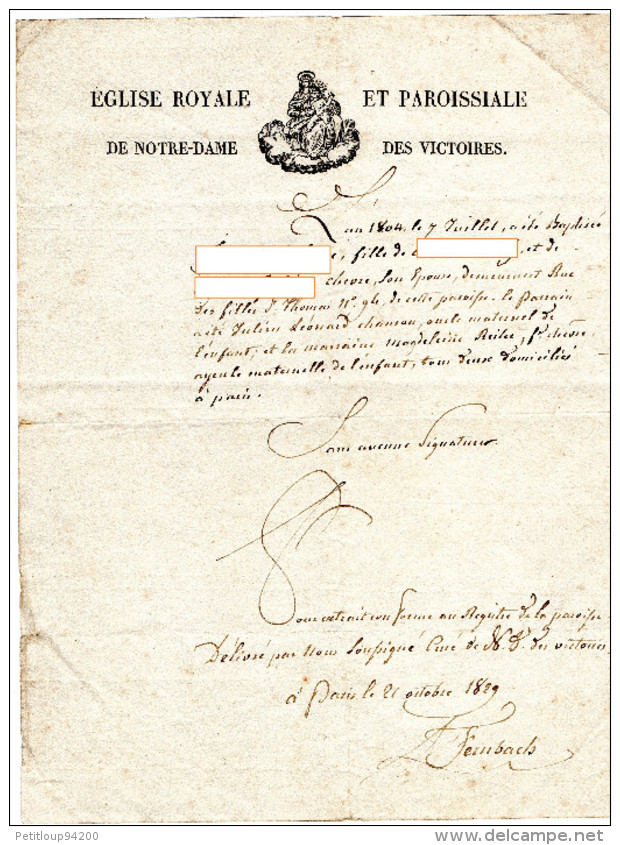 EGLISE ROYALE ET PAROISSIALE
DE NOTRE-DAME DES VICTOIRES.
L'an 1804, le 7 Juillet, a été Baptisée
fille de et de
chevre, son Epouse, demeurant Rue
des filles St Thomas No. 94, de cette paroisse. le Parrain
a été Julien Léonard chanson, oncle maternel de
l'enfant; et la marraine magdeleine Reilec, fe chevre,
ayeule maternelle de l'enfant, tous deux domiciliés
à paris.
Sans aucune Signature.
Pour extrait conforme au Registre de la paroisse
Délivré par Nous Soussigné Curé de N. De. des victoires
à Paris le 21 octobre 1829
Fernbach
Petitloup94200
www.delcampe.net